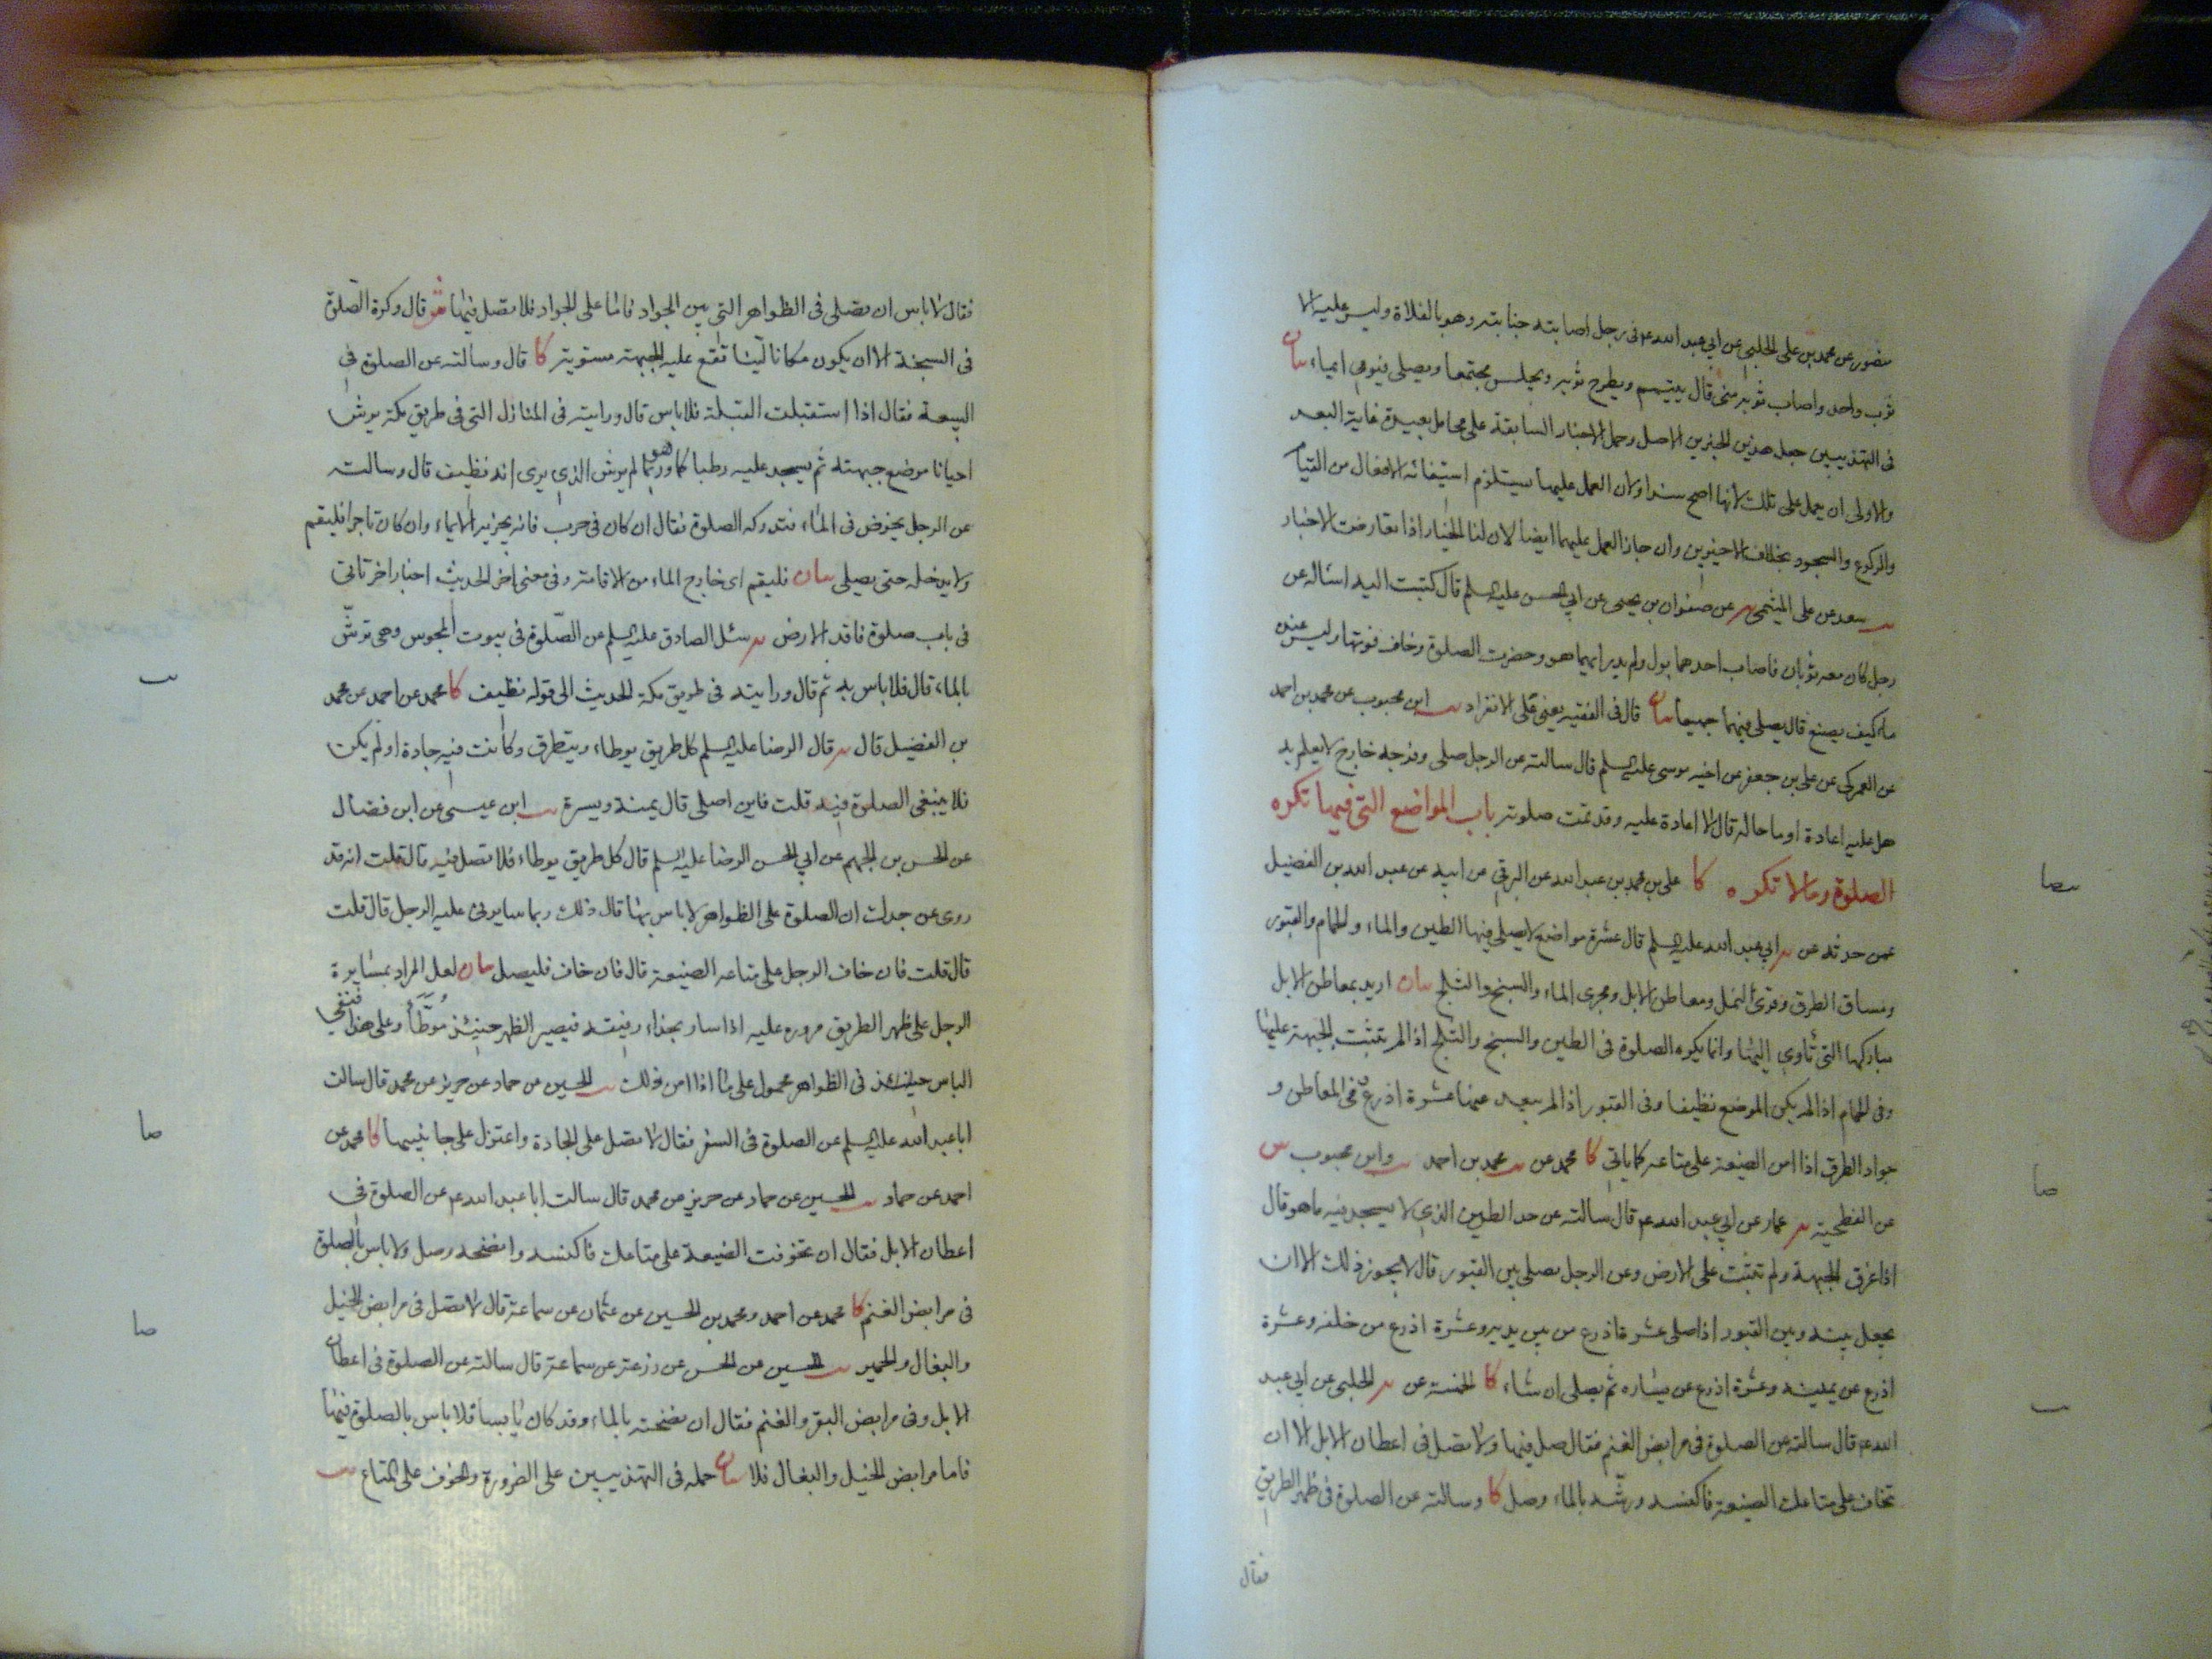 منصور عن محمد بن على الحلبي عن ابي عبد الله ع في رجل اصابته جنابة وهو بالفلاة وليس عليه الا
ثوب واحد واصاب ثوبه منى قال يتيمم ويطرح ثوبه ويجلس مجتمعا ويصلى فيومى ايماء بيان
فى التهذيبين جعل هذين الخبرين الاصل وحمل الاخبار السابقة على محامل بعيدة غاية البعد
والاولى ان يعمل على تلك لانها اصح سندا ولان العمل عليها يستلزم استيفائه الافعال من القيام
والركوع والسجود بخلاف الاخيرين وان جاز العمل عليهما ايضا لان لنا الخيار اذا تعارضت الاخبار
يب سعد عن على الميثمى يه عن صفوان بن يحيى عن ابي الحسن عليه السلم قال كتبت اليه اسئاله عن
رجل كان معه ثوبان فاصاب احدهما بول ولم يدر ايهما هو وحضرت الصلوة وخاف فوتها وليس عنده
ماء كيف يصنع قال يصلى فيهما جميعا بيان قال فى الفقيه يعنى على الانفراد يب ابن محبوب عن محمد بن احمد
عن العمركى عن على بن جعفر عن اخيه موسى عليه السلم قال سالته عن الرجل صلى وفرجه خارج لا يعلم به
هل عليه اعادة او ما حاله قال لا اعادة عليه وقد تمت صلوته باب المواضع التى فيها تكره
الصلوة وما لا تكره كا على بن محمد بن عبد الله عن البرقي عن ابيه عن عبد الله بن الفضيل
عمن حدثه عن يه ابي عبد الله عليه السلم قال عشرة مواضع لا يصلى فيها الطين والماء والحمام والقبور
ومسان الطرق وقرى النمل ومعاطن الابل ومجرى الماء والسبخ والثلج بيان اريد بمعاطن الابل
مباركها التى تاوي اليها وانما يكره الصلوة فى الطين والسبخ والثلج اذا لم تثبت الجبهة عليها
وفى الحمام اذا لم يكن الموضع نظيفا وفى القبور اذا لم يبعد عنها عشرة اذرع وفى المعاطن و
جواد الطرق اذا امن الضيعة على متاعه كما ياتي كا محمد عن يب محمد بن احمد يب وابن محبوب س
عن الفطحية يه عمار عن ابي عبد الله ع قال سالته عن حد الطين الذي لا يسجد فيه ما هو قال
اذا غرق الجبهة ولم تثبت على الارض وعن الرجل يصلى بين القبور قال لا يجوز ذلك الا ان
يجعل بينه وبين القبور اذا صلى عشرة اذرع من بين يديه وعشرة اذرع من خلفه وعشرة
اذرع عن يمينه وعشرة اذرع عن يساره ثم يصلى ان شاء كا الخمسة عن يه الحلبي عن ابي عبد
الله ع قال سالته عن الصلوة فى مرابض الغنم فقال صل فيها ولا تصل فى اعطان الابل الا ان
تخاف على متاعك الضيعة فاكنسه ورشه بالماء وصل كا وسالته عن الصلوة فى ظهر الطريق
فقال
صا
صا
يب
فقال لا باس ان تصلى فى الظواهر التى بين الجواد فاما على الجواد فلا تصل فيها قال وكره الصلوة
فى السبخة الا ان يكون مكانا لينا تقع عليه الجبهة مستوية كا قال وسالته عن الصلوة فى
البيعة فقال اذا استقبلت القبلة فلا باس قال ورايته فى المنازل التى فى طريق مكة يرش
احيانا موضع جبهته ثم يسجد عليه رطبا كما هو وربما لم يرش الذي يرى انه نظيف قال وسالته
عن الرجل يخوض فى الماء فتدركه الصلوة فقال ان كان فى حرب فانه يجزيه الايماء وان كان تاجرا فليقم
ولا يدخله حتى يصلى بيان فليقم اى خارج الماء من الاقامة وفى معنى اخر الحديث اخبار اخر تاتى
فى باب صلوة فاقد الارض يه سئل الصادق عليه السلم عن الصلوة فى بيوت المجوس وهى ترش
بالماء قال فلا باس به ثم قال ورايته فى طريق مكة الحديث الى قوله نظيف كا محمد عن احمد عن محمد
بن الفضيل قال يه قال الرضا عليه السلم كل طريق يوطاء ويتطرق وكانت فيه جادة او لم يكن
فلا ينبغى الصلوة فيه قلت فاين اصلى قال يمنة ويسرة يب ابن عيسى عن ابن فضال
عن الحسن بن الجهم عن ابي الحسن الرضا عليه السلم قال كل طريق يوطاء فلا تصل فيه قال قلت انه قد
روى عن جدك ان الصلوة على الظواهر لا باس بها قال ذلك ربما سايرنى عليه الرجل قال قلت
قال قلت فان خاف الرجل على متاعه الضيعة قال فان خاف فليصل بيان لعل المراد بمسايرة
الرجل على ظهر الطريق مروره عليه اذا سار بحذاء رفيقه فيصير الظهر حينئذ موطأ وعلى هذا فنفى
الباس حينئذ فى الظواهر محمول على ما اذا امن ذلك يب الحسين عن حماد عن حريز عن محمد قال سالت
ابا عبد الله عليه السلم عن الصلوة فى السفر فقال لا تصل على الجادة واعتزل على جانبيها كا محمد عن
احمد عن حماد يب الحسين عن حماد عن حريز عن محمد قال سالت ابا عبد الله ع عن الصلوة فى
اعطان الابل فقال ان تخوفت الضيعة على متاعك فاكنسه وانضحه وصل ولا باس بالصلوة
فى مرابض الغنم كا محمد عن احمد ومحمد بن الحسين عن عثمان عن سماعة قال لا تصل فى مرابض الخيل
والبغال والحمير يب الحسين عن الحسن عن زرعة عن سماعة قال سالته عن الصلوة فى اعطان
الابل وفى مرابض البقر والغنم فقال ان نضحته بالماء وقد كان يابسا فلا باس بالصلوة فيها
فاما مرابض الخيل والبغال فلا بيان حمله فى التهذيبين على الضرورة والخوف على المتاع يب
يب
صا
صا